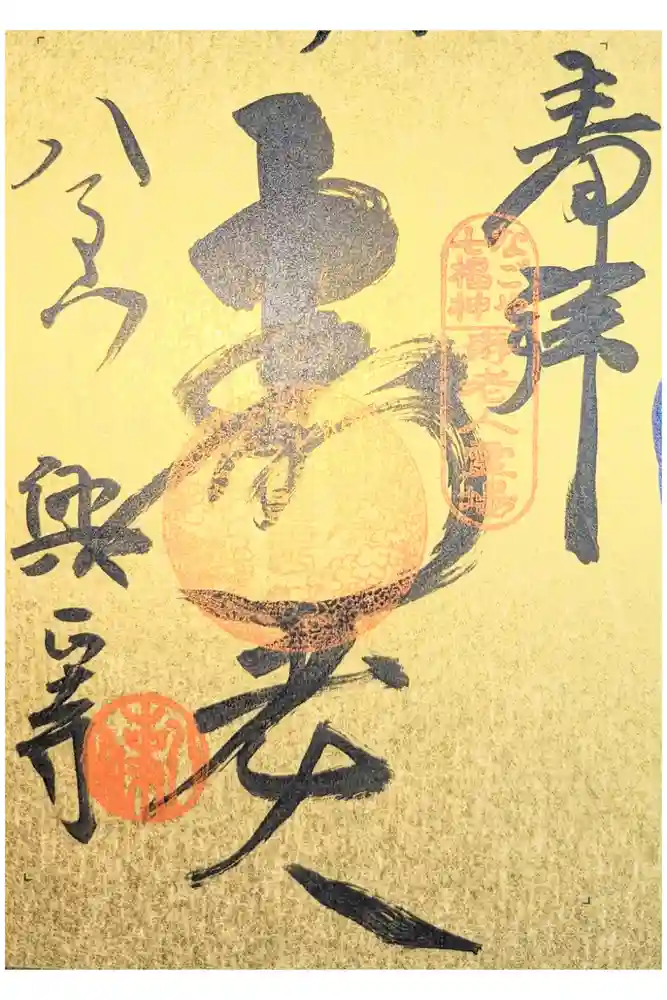 奉拝
なごや
七福神
寿老人霊場
寿老人
八事山
興正寺